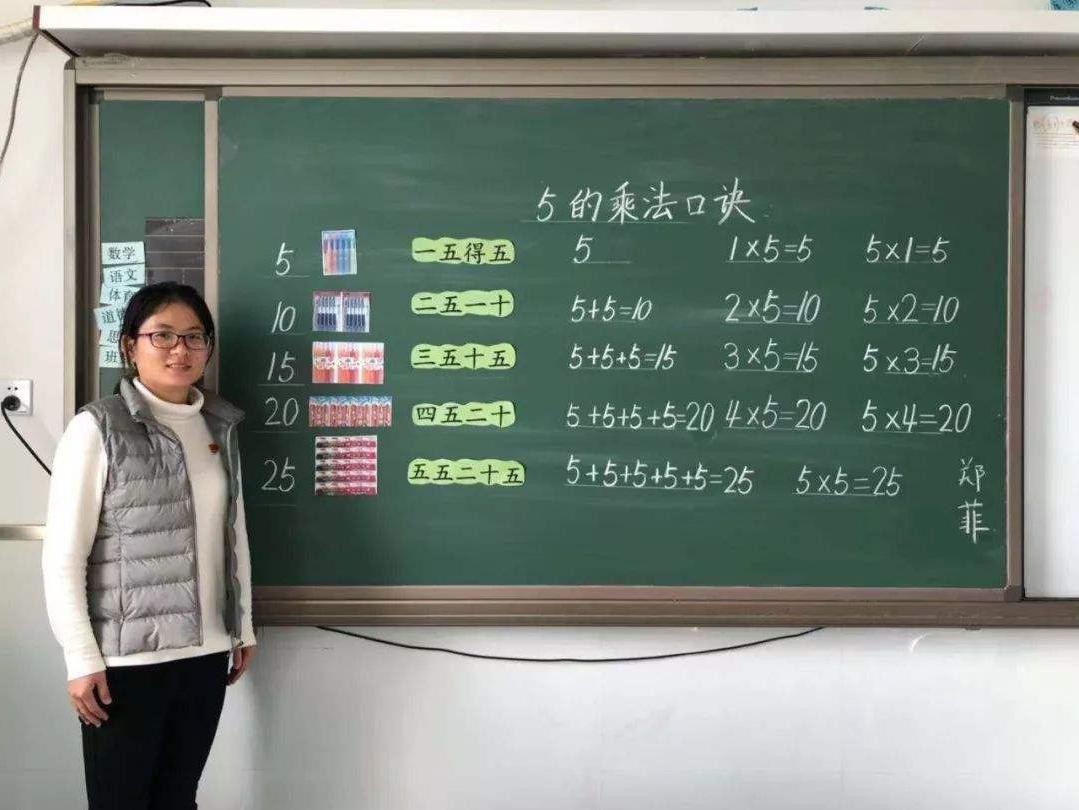 5的乘法口诀
5 一五得五 5 1×5=5 5×1=5
10 二五一十 5+5=10 2×5=10 5×2=10
15 三五十五 5+5+5=15 3×5=15 5×3=15
20 四五二十 5+5+5+5=20 4×5=20 5×4=20
25 五五二十五 5+5+5+5+5=25 5×5=25
郑
菲
数学
语文
体育
道德
思
班